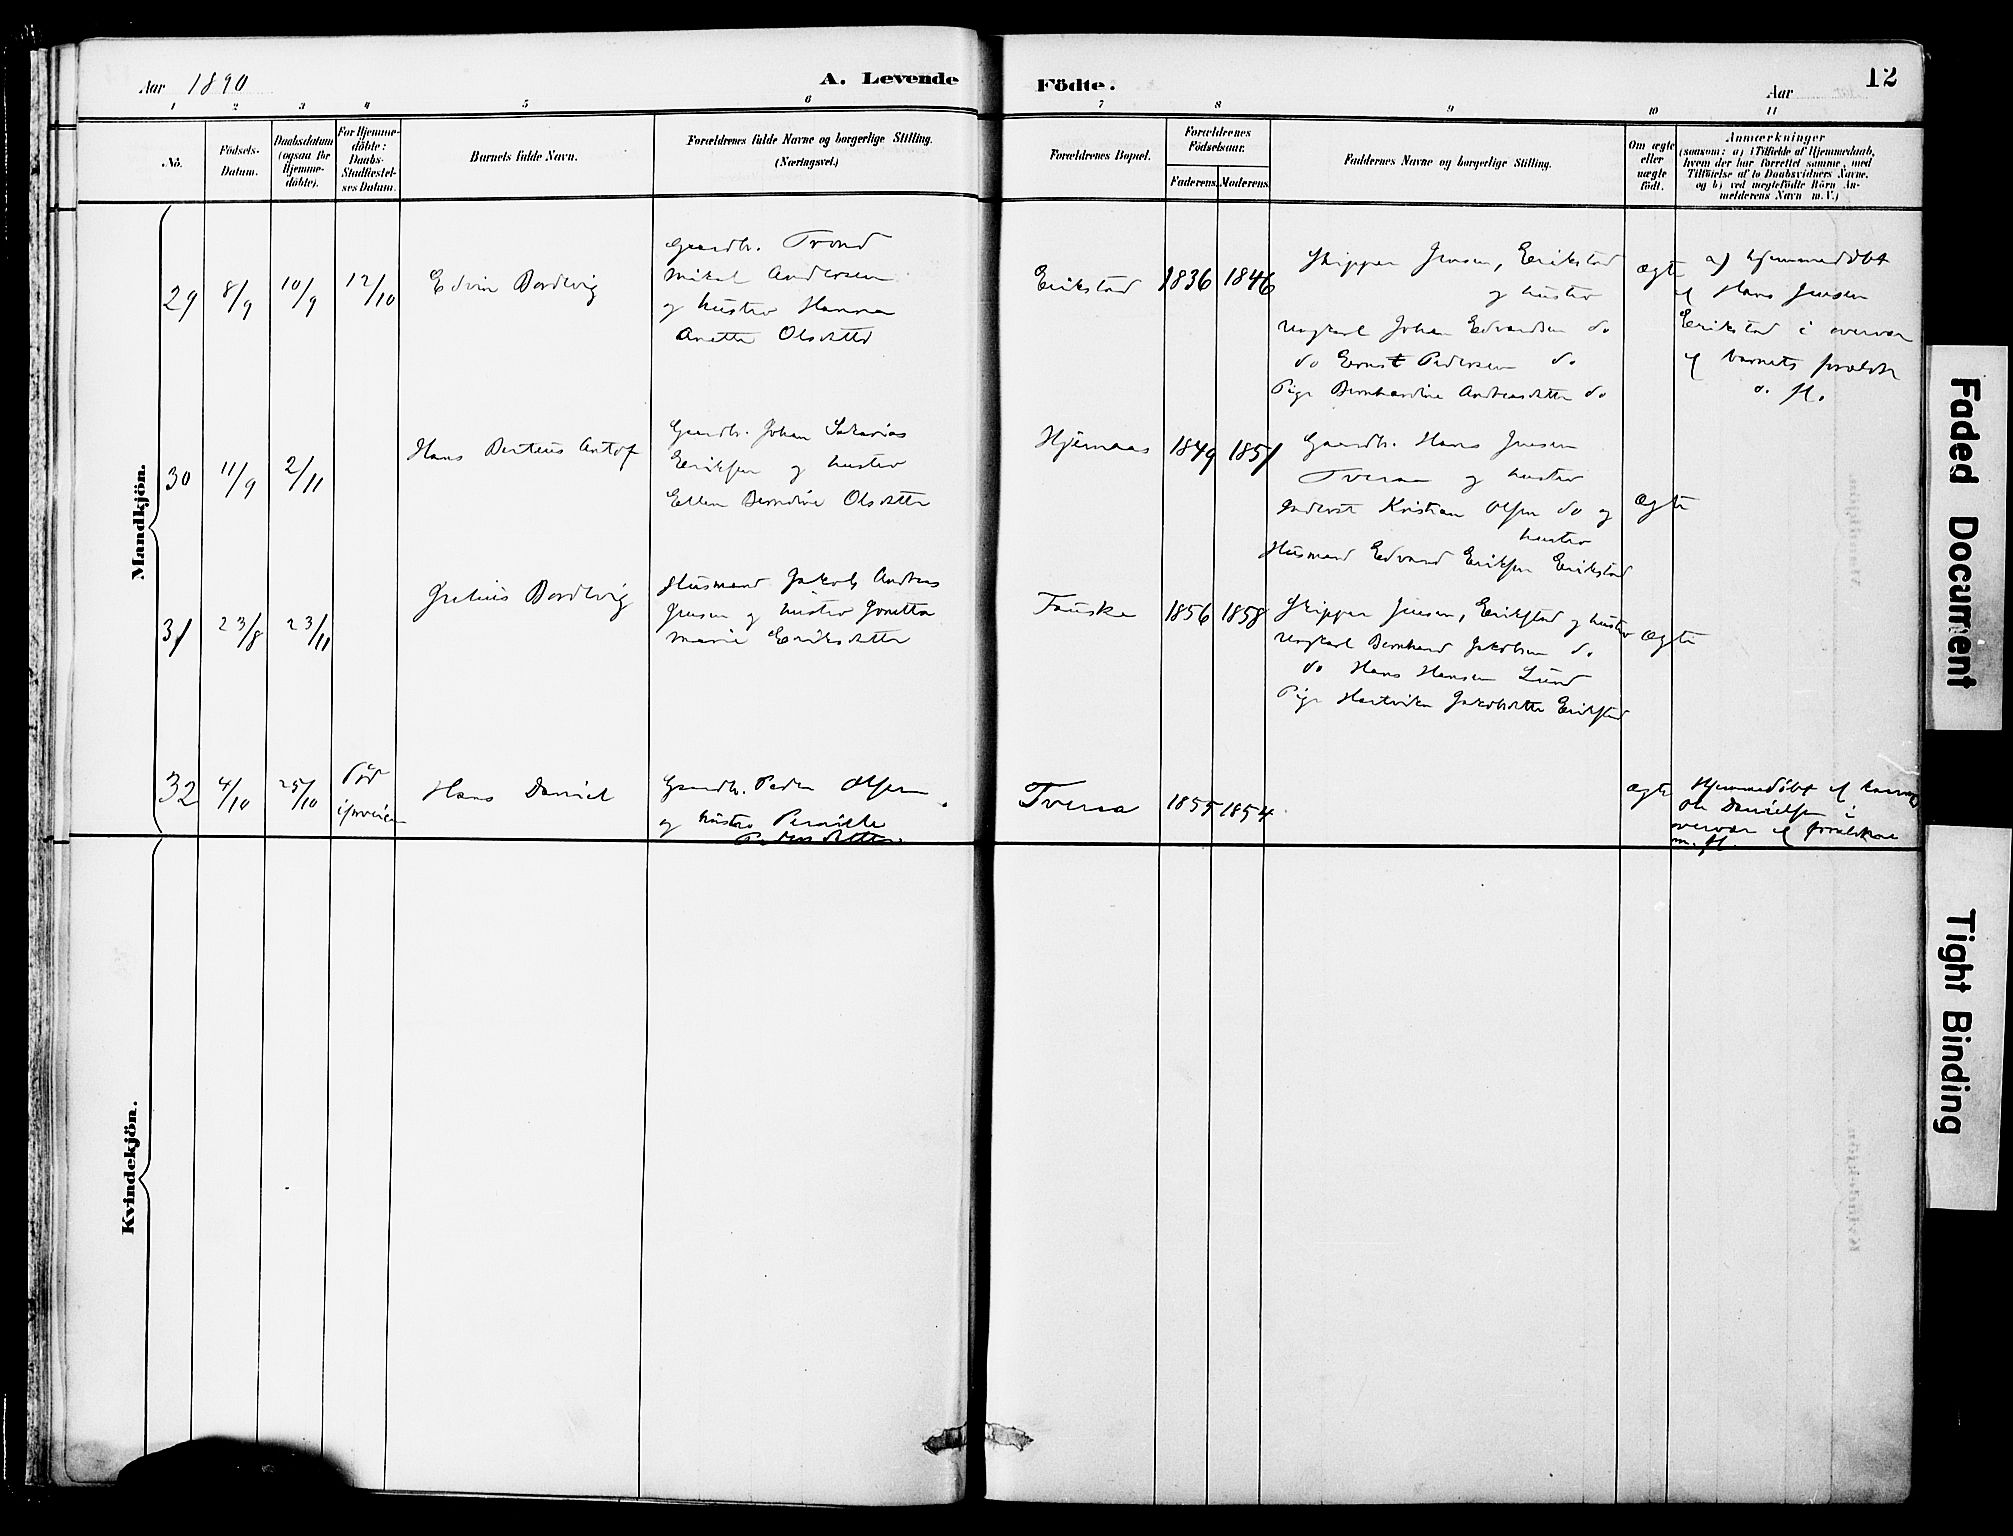 Aar 1890
A. Levende
Födte.
Aar
12
1 2 3 4 5 6 7 8 9 10 11
No.
Födsels-
Datum.
Daabsdatum
(ogsaa for
Hjemme-
döbte).
For Hjemme-
döbte:
Daabs-
Stadfæstel-
ses Datum.
Barnets fulde Navn.
Forældrenes fulde Navne og borgerlige Stilling.
(Næringsvei.)
Forældrenes Bopæl.
Forældrenes
Födselsaar.
Faderens. Moderens.
Faddernes Navne og borgerlige Stilling.
Om ægte
eller
uægte
födt.
Anmærkninger
(saasom: a) i Tilfælde af Hjemmedaab,
hvem der har forrettet samme, med
Tilföielse af to Daabsvidners Navne.
og b) ved uægtefödte Börn An-
melderens Navn m.V.)
Mandkjön.
29 8/9 10/9 12/10
Edvin Bordevig
Gaardb. Trond
Mikal Andersen
og hustro Hanna
Anette Olsdatter
Erikstad
1836 1846
Skipper Jensen, Erikstad
og hustro
Ungkarl Johan Edvardsen do
do Ernst Pedersen do
Pige Bernhardine Andreasdatter do
ægte
a) hjemmedøbt
af Hans Jensen
Erikstad i overvær
af barnets forældre
o. fl.
30 11/9 2/11
Hans Berteus Antof
Gaardb. Johan Sakarias
Eriksen og hustro
Ellen Berndine Olsdatter
Hjemaas
1849 1851
Gaardb. Hans Jensen
Tveraa og hustro
Inderst Kristian Olsen do og
hustro
Husmand Edvard Eriksen Erikstad
ægte
31 23/8 23/11
Bordevig
Husmand Jakob Andreas
Jensen og hustro Jonetta
Marie Eriksdatter
Fauske
1856 1858
Skipper Jensen, Erikstad og hustro
Ungkarl Bernhard Jakobsen do
do Hans Hansen Lund
Pige Hartvikka Jakobsdatter Erikstad
ægte
32 4/10 25/10
Död
iforveien
Hans Daniel
Gaardb. Peder Olsen
og hustro Pernille
Pedersdatter
Tveraa
1855 1854
ægte
Hjemmedöbt af
Ole Danielsen i
overvær af forældrene
m. fl.
Kvindekjön.
Faded Document
Tight Binding